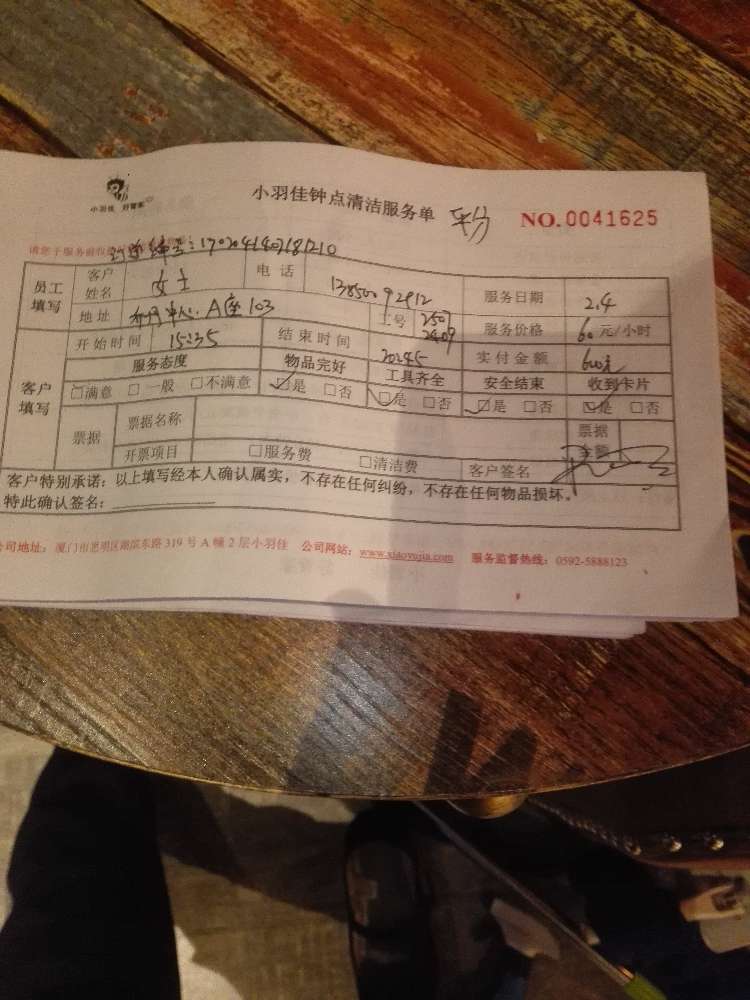 小羽佳 好管家
小羽佳钟点清洁服务单 平分
NO.0041625
请您于服务前收
订单编号:1702041402181210
员工填写 客户姓名 女士 电话 13850092912 服务日期 2.4
地址 A座103 工号 2507 2409 服务价格 60元/小时
客户填写 开始时间 15:35 结束时间 20:45 实付金额 600元
服务态度 物品完好 工具齐全 安全结束 收到卡片
□满意 □一般 □不满意 ☑是 □否 ☑是 □否 ☑是 □否 ☑是 □否
票据 票据名称 票据金额
开票项目 □服务费 □清洁费 客户签名
客户特别承诺:以上填写经本人确认属实,不存在任何纠纷,不存在任何物品损坏。
特此确认签名:
公司地址:厦门市思明区湖滨东路319号A幢2层小羽佳 公司网站:www.xiaoyujia.com 服务监督热线:0592-5888123